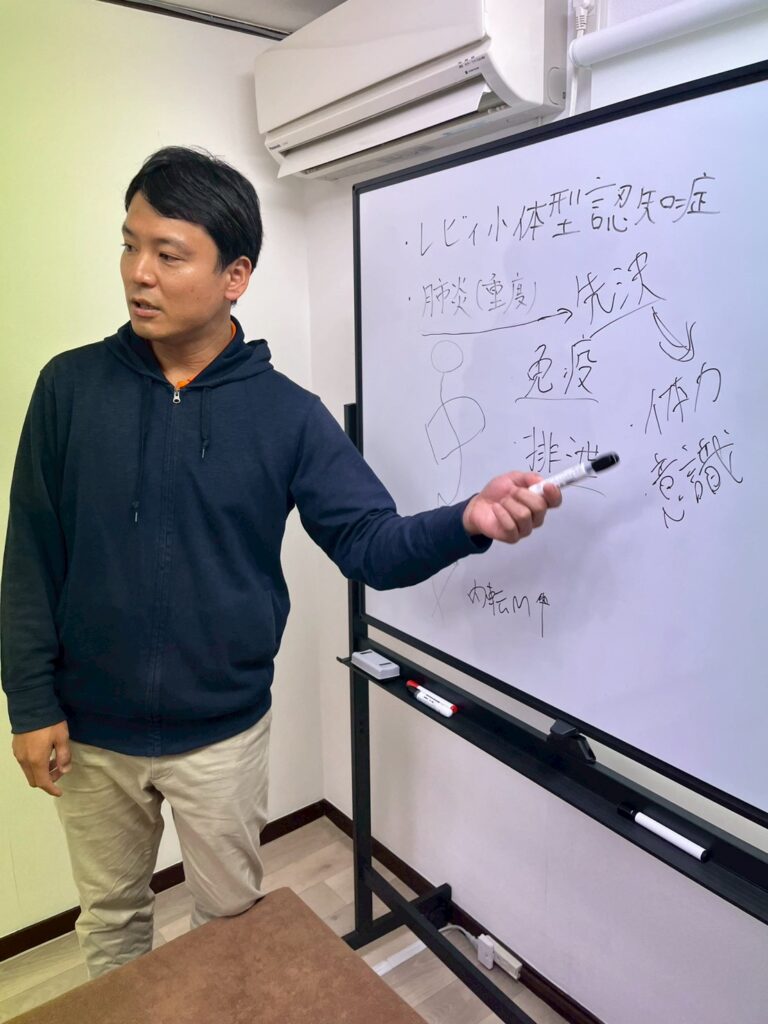 ・レビィ小体型認知症
・肺炎(重度) → 先決
免疫
・体力
・排泄
・意識
内転M